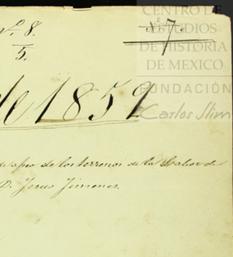 Nº. 8.
5.
7
CENTRO DE
ESTUDIOS
DE HISTORIA
DE MEXICO.
FUNDACIÓN
Carlos Slim
de 1859
de los terrenos de la
D. Jesus Jimenes.